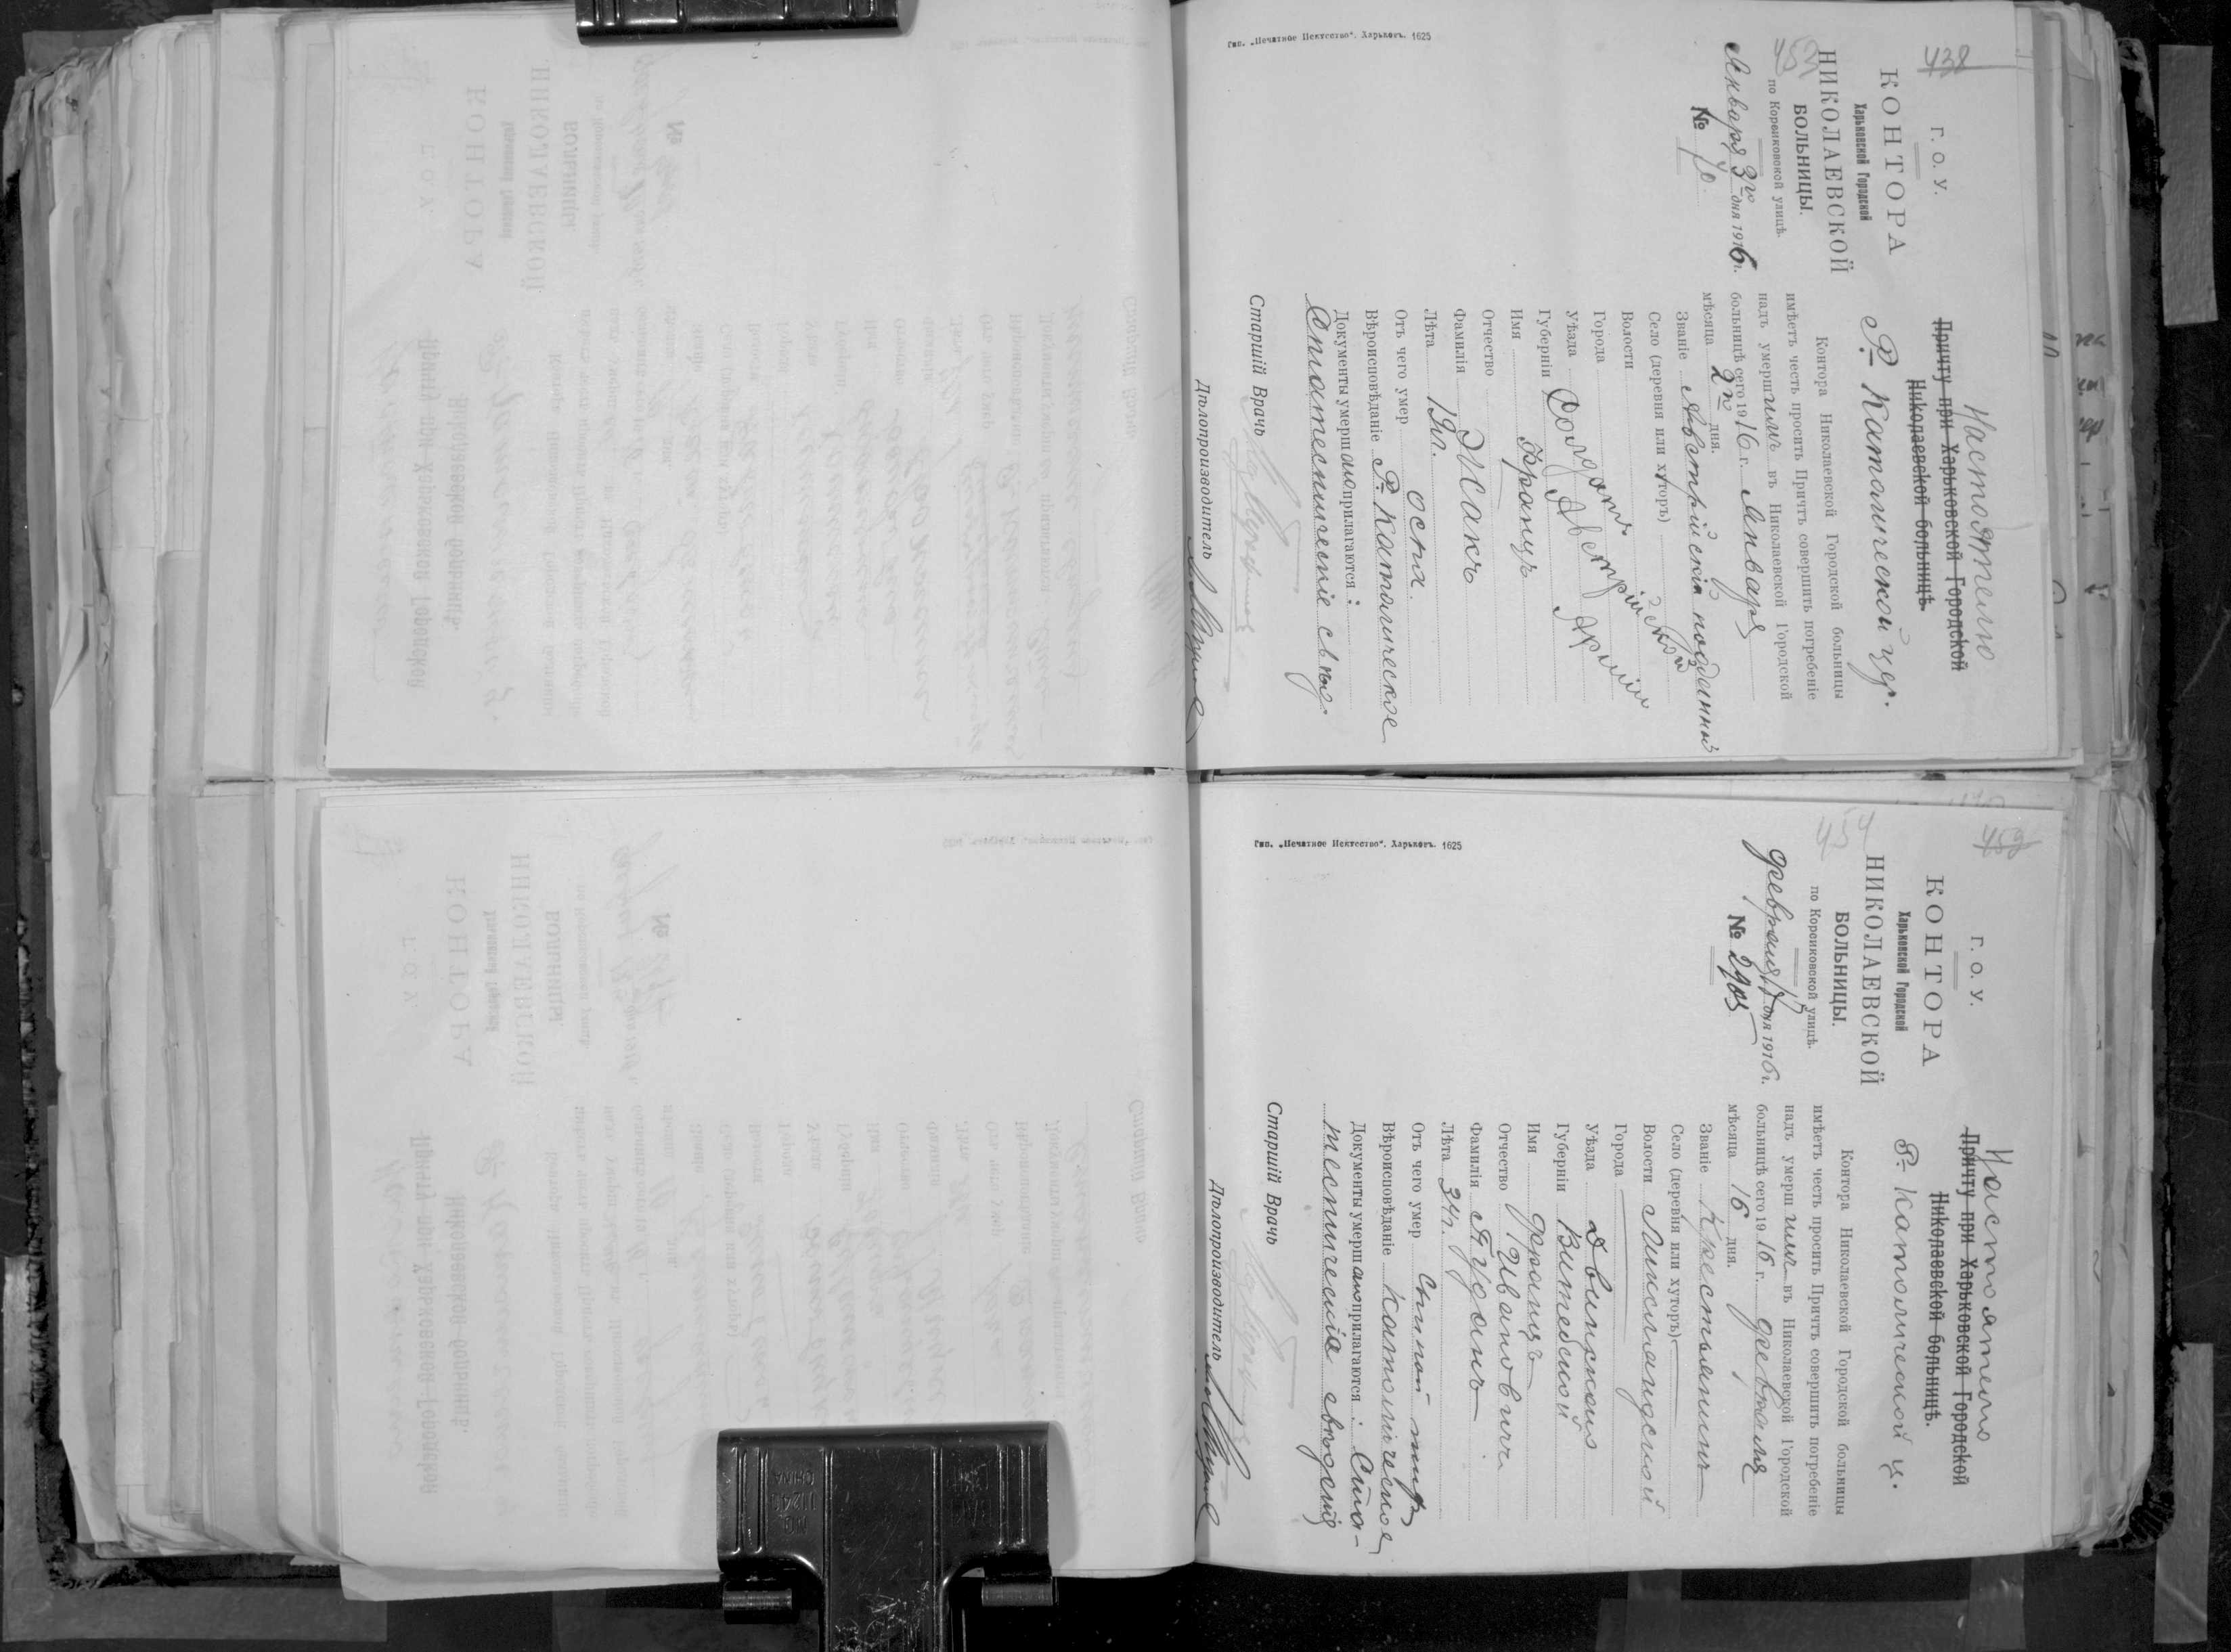 438
453
Г. О. У.
КОНТОРА
Харьковской Городской
НИКОЛАЕВСКОЙ
БОЛЬНИЦЫ.
по Корсиковской улицѣ.
Января 3го дня 1916 г.
№ 70
Настоятелю
Причту при Харьковской Городской
Николаевской больницѣ.
Р.- Католической цер.
Контора Николаевской Городской больницы
имѣетъ честь просить Причтъ совершить погребеніе
надъ умершимъ въ Николаевской Городской
больницѣ сего 1916 г. Января
мѣсяца 2го дня.
Званіе Австрійскій подданный
Село (деревня или хуторъ)
Волости
Города
Уѣзда Солдатъ
Губерніи Австрійской Арміи
Имя Францъ
Отчество
Фамилія Жакъ
Лѣта 19л.
Отъ чего умер оспа.
Вѣроисповѣданіе Р.- Католическое
Документы умершаго прилагаются:
Статестическіе свѣд.
Старшій Врачъ
Дѣлопроизводитель
Тип. „Печатное Искусство". Харьковъ. 1625
459
454
Г. О. У.
КОНТОРА
Харьковской Городской
НИКОЛАЕВСКОЙ
БОЛЬНИЦЫ.
по Корсиковской улицѣ.
Февраля 17 дня 1916 г.
№ 2905
Настоятелю
Причту при Харьковской Городской
Николаевской больницѣ.
Р.- Католической ц.
Контора Николаевской Городской больницы
имѣетъ честь просить Причтъ совершить погребеніе
надъ умершимъ въ Николаевской Городской
больницѣ сего 1916 г. Февраля
мѣсяца 16 дня.
Званіе Крестьянинъ
Село (деревня или хуторъ)
Волости Ликснянской
Города
Уѣзда Двинскаго
Губерніи Витебской
Имя Францъ
Отчество Ивановичъ
Фамилія Ягудинъ
Лѣта 34г.
Отъ чего умер Сыпной тифъ
Вѣроисповѣданіе Католическое
Документы умершаго прилагаются: Ста-
тестическія свѣдѣнія
Старшій Врачъ
Дѣлопроизводитель
Тип. „Печатное Искусство". Харьковъ. 1625